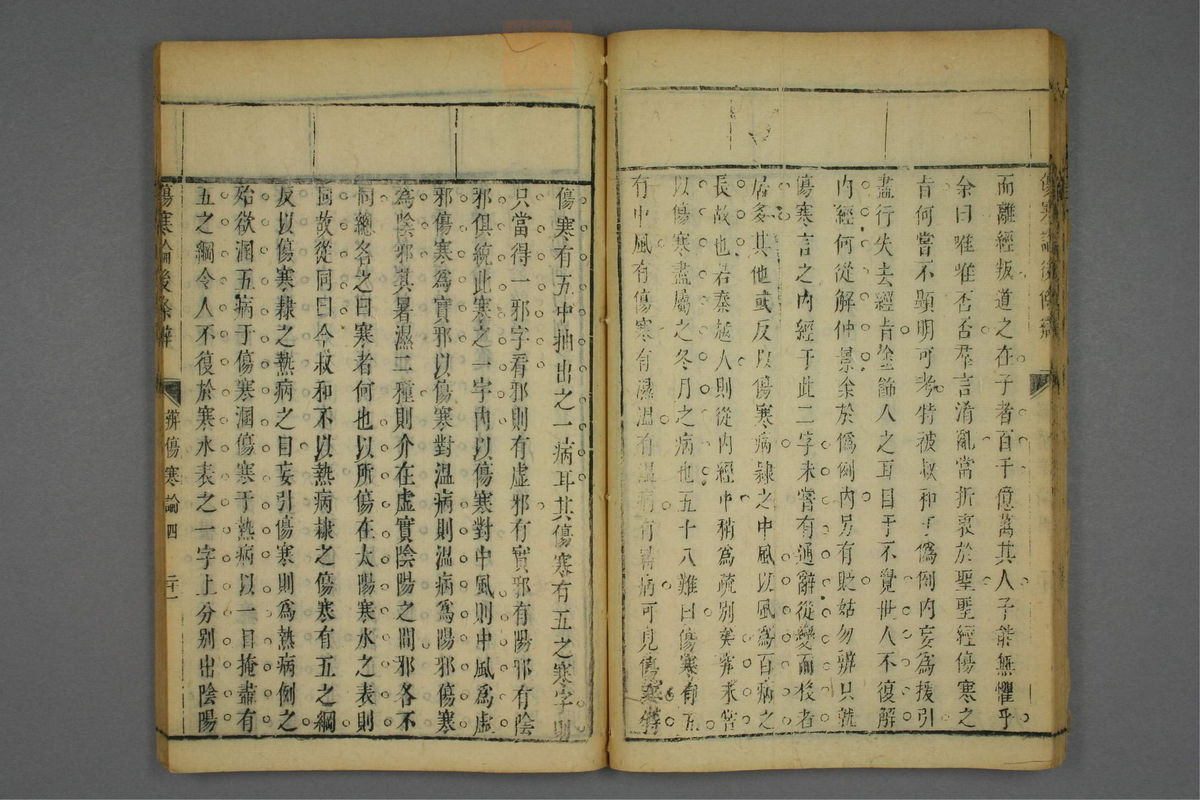 而離經叛道之在子者百千億萬其人子能無懼乎
余曰唯唯否否羣言淆亂當折衷於聖聖經傷寒之
旨何嘗不顯明可考特被叔和于偽例内妄為援引
盡行失去經旨塗飾人之耳目于不覺世人不復解
内經何從解仲景余於偽例内另有貶姑勿辨只就
傷寒言之内經于此二字未嘗有通辭從變而後者
居多其他或反以傷寒病隸之中風以風為百病之
長故也若秦越人則從内經中稍為疏别矣究未嘗
以傷寒盡屬之冬月之病也五十八難曰傷寒有五
有中風有傷寒有濕溫有溫病有暑病可見傷寒
傷寒有五中抽出之一病耳其傷寒有五之寒字則
只當得一邪字看邪則有虛邪有實邪有陽邪有陰
邪俱統此寒之一字内以傷寒對中風則中風為虛
邪傷寒為實邪以傷寒對溫病則溫病為陽邪傷寒
為陰邪其暑濕二種則介在虛實陰陽之間邪各不
同總名之曰寒者何也以所傷在太陽寒水之表則
同故從同曰今叔和不以熱病隸之傷寒有五之綱
反以傷寒隸之熱病之目妄引傷寒則為熱病例之
殆欲溷五病于傷寒溷傷寒于熱病以一目掩盡有
五之綱令人不復於寒水表之一字上分别出陰陽
傷寒論後條辨 辨傷寒論四 二十一